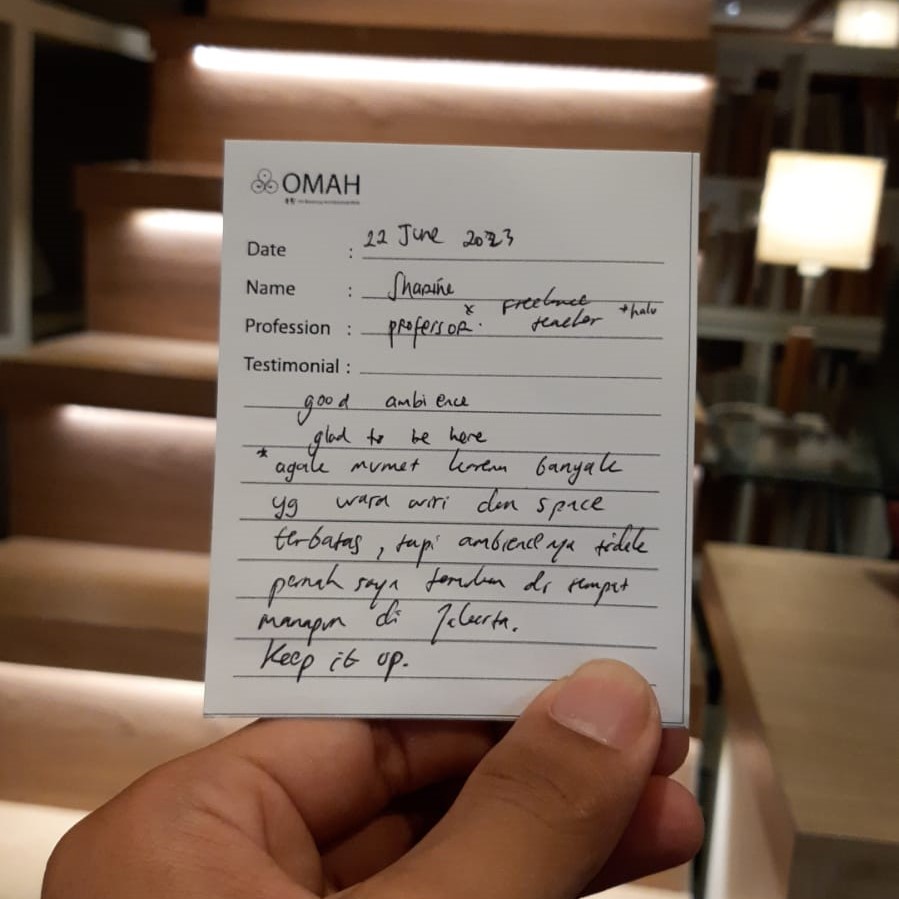 OMAH
Date : 22 June 2023
Name : Shasine
freelance
Profession : professor. x teacher *halu
Testimonial :
good ambience
glad to be here
* agak mumet karena banyak
yg wara wiri dan space
terbatas, tapi ambiencenya tidak
pernah saya temukan di tempat
manapun di Jakarta.
Keep it up.